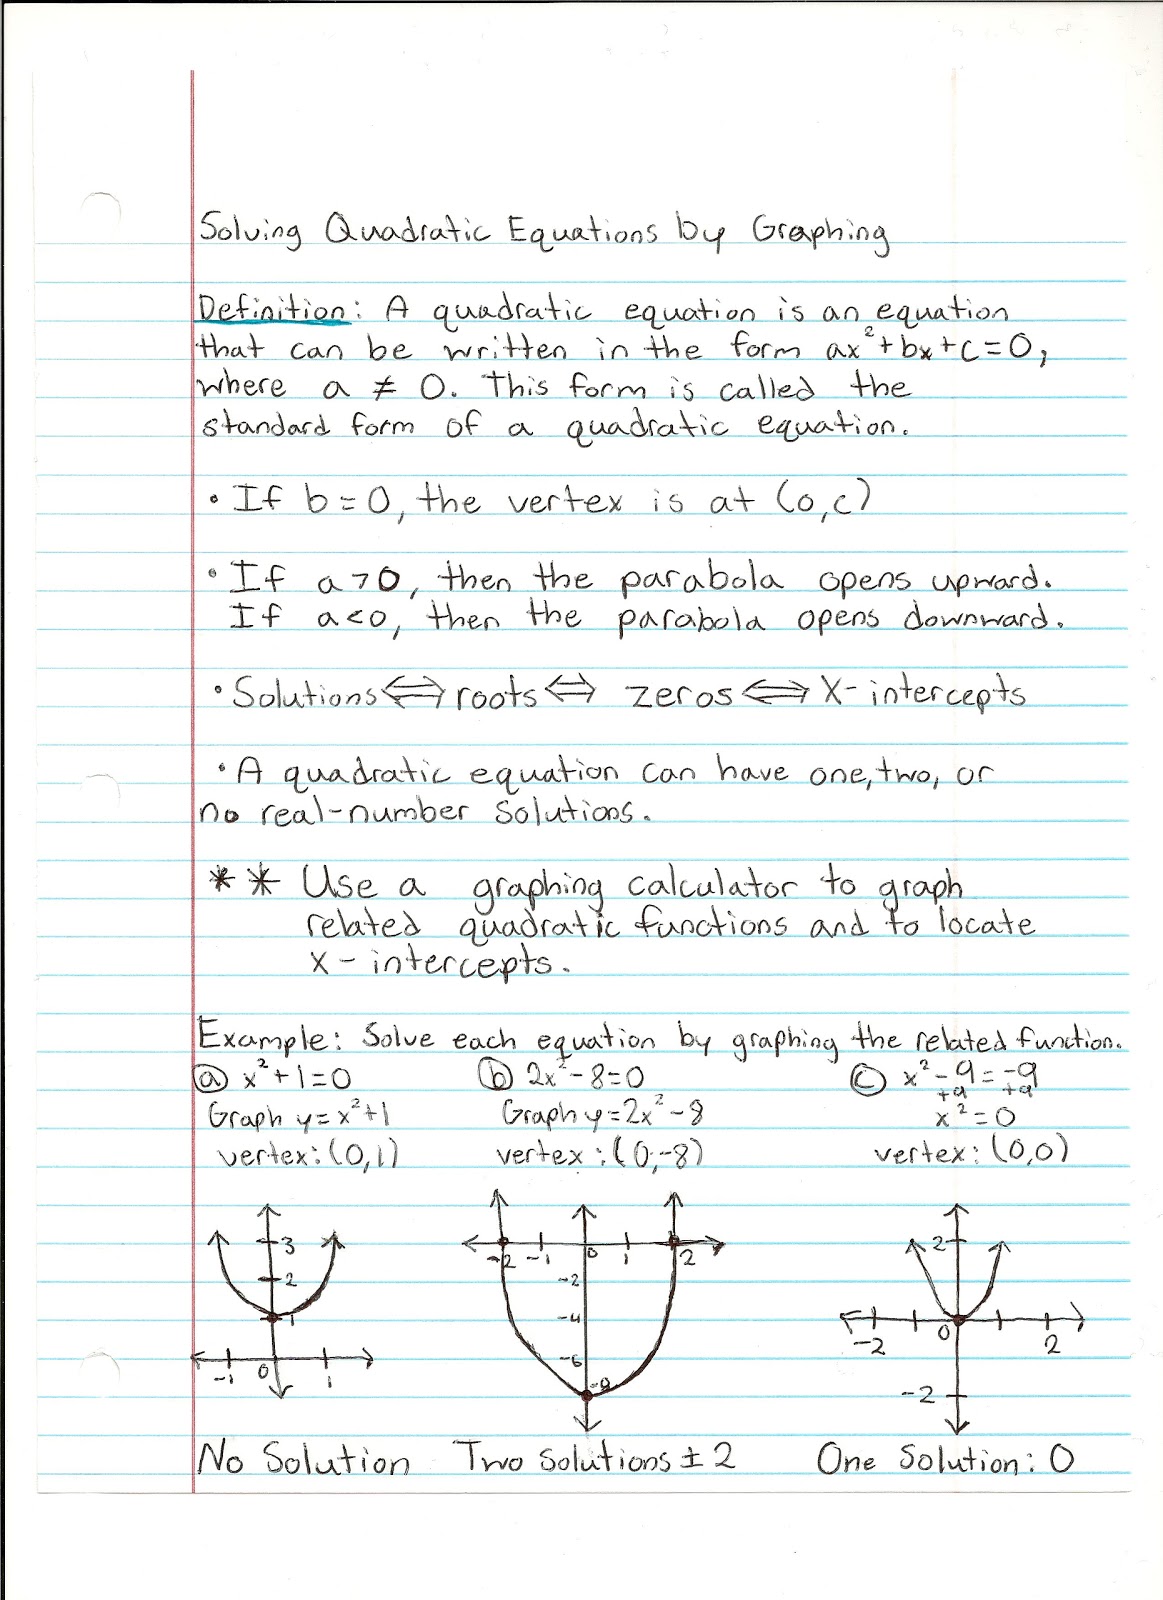 Solving Quadratic Equations by Graphing
Definition: A quadratic equation is an equation
that can be written in the form ax²+bx+c=0,
where a ≠ 0. This form is called the
standard form of a quadratic equation.
• If b=0, the vertex is at (0,c)
• If a>0, then the parabola opens upward.
If a<0, then the parabola opens downward.
• Solutions⟺roots⟺ zeros⟺X-intercepts
• A quadratic equation can have one, two, or
no real-number solutions.
** Use a graphing calculator to graph
related quadratic functions and to locate
x-intercepts.
Example: Solve each equation by graphing the related function.
ⓐ x²+1=0 ⓑ 2x²-8=0 ⓒ x²-9=-9
+9 +9
Graph y=x²+1 Graph y=2x²-8 x²=0
vertex:(0,1) vertex:(0,-8) vertex:(0,0)
3
2
1
-1 0 1
-2 -1 0 1 2
-2
-4
-6
-8
2
-2 0 2
-2
No Solution Two solutions ±2 One Solution: 0